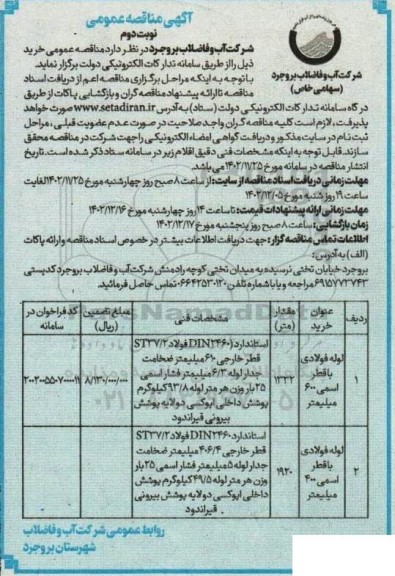 آگهی مناقصه عمومی
نوبت دوم
شرکت آب و فاضلاب بروجرد
(سهامی خاص)
شرکت آب و فاضلاب بروجرد در نظر دارد مناقصه عمومی خرید
ذیل را از طریق سامانه تدارکات الکترونیکی دولت برگزار نماید.
با توجه به اینکه مراحل برگزاری مناقصه اعم از دریافت اسناد
مناقصه تا ارائه پیشنهاد مناقصه گران و بازگشایی پاکات از طریق
درگاه سامانه تدارکات الکترونیکی دولت (ستاد) به آدرس www.setadiran.ir صورت خواهد
پذیرفت، لازم است کلیه مناقصه گران واجد صلاحیت در صورت عدم عضویت قبلی، مراحل
ثبت نام در سایت مذکور و دریافت گواهی امضاء الکترونیکی را جهت شرکت در مناقصه محقق
سازند. قابل توجه به اینکه مشخصات فنی دقیق اقلام زیر در سامانه ستاد ذکر شده است. تاریخ
انتشار مناقصه در سامانه مورخ ۱۴۰۲/۱۱/۲۵ می باشد.
مهلت زمانی دریافت اسناد مناقصه از سایت: از ساعت ۸ صبح روز چهارشنبه مورخ ۱۴۰۲/۱۱/۲۵ لغایت
ساعت ۱۹ روز شنبه مورخ ۱۴۰۲/۱۲/۰۵
مهلت زمانی ارائه پیشنهادات قیمت: تا ساعت ۱۴ روز چهارشنبه مورخ ۱۴۰۲/۱۲/۱۶
زمان بازگشایی: ساعت ۸ صبح روز پنجشنبه مورخ ۱۴۰۲/۱۲/۱۷
اطلاعات تماس مناقصه گزار: جهت دریافت اطلاعات بیشتر در خصوص اسناد مناقصه و ارائه پاکات
(الف) به آدرس:
بروجرد خیابان تختی نرسیده به میدان تختی کوچه رادمنش شرکت آب و فاضلاب بروجرد کدپستی
۶۹۱۵۷۷۳۷۴۳ مراجعه و یا با شماره تلفن ۰۶۶۴۲۵۳۰۱۲۰ تماس حاصل فرمائید.
ردیف | عنوان خرید | مقدار (متر) | مشخصات فنی | مبلغ تضمین (ریال) | کد فراخوان در سامانه
۱ | لوله فولادی با قطر اسمی ۶۰۰ میلیمتر | ۱۳۳۲ | استاندارد (DIN۲۴۶۰ فولاد ST۳۷/۲ قطر خارجی ۶۱۰ میلیمتر ضخامت جدار لوله ۶/۳ میلیمتر فشار اسمی ۲۵ بار وزن هر متر لوله ۹۳/۸ کیلوگرم پوشش داخلی اپوکسی دو لایه پوشش بیرونی قیراندود | ۸/۱۲۰/۰۰۰/۰۰۰ | ۲۰۰۲۰۰۵۵۰۷۰۰۰۰۱۱
۲ | لوله فولادی با قطر اسمی ۴۰۰ میلیمتر | ۱۹۲۰ | استاندارد DIN۲۴۶۰ فولاد ST۳۷/۲ قطر خارجی ۴۰۶/۴ میلیمتر ضخامت جدار لوله ۵ میلیمتر فشار اسمی ۲۵ بار وزن هر متر لوله ۴۹/۵ کیلوگرم پوشش داخلی اپوکسی دو لایه پوشش بیرونی قیراندود
روابط عمومی شرکت آب و فاضلاب
شهرستان بروجرد